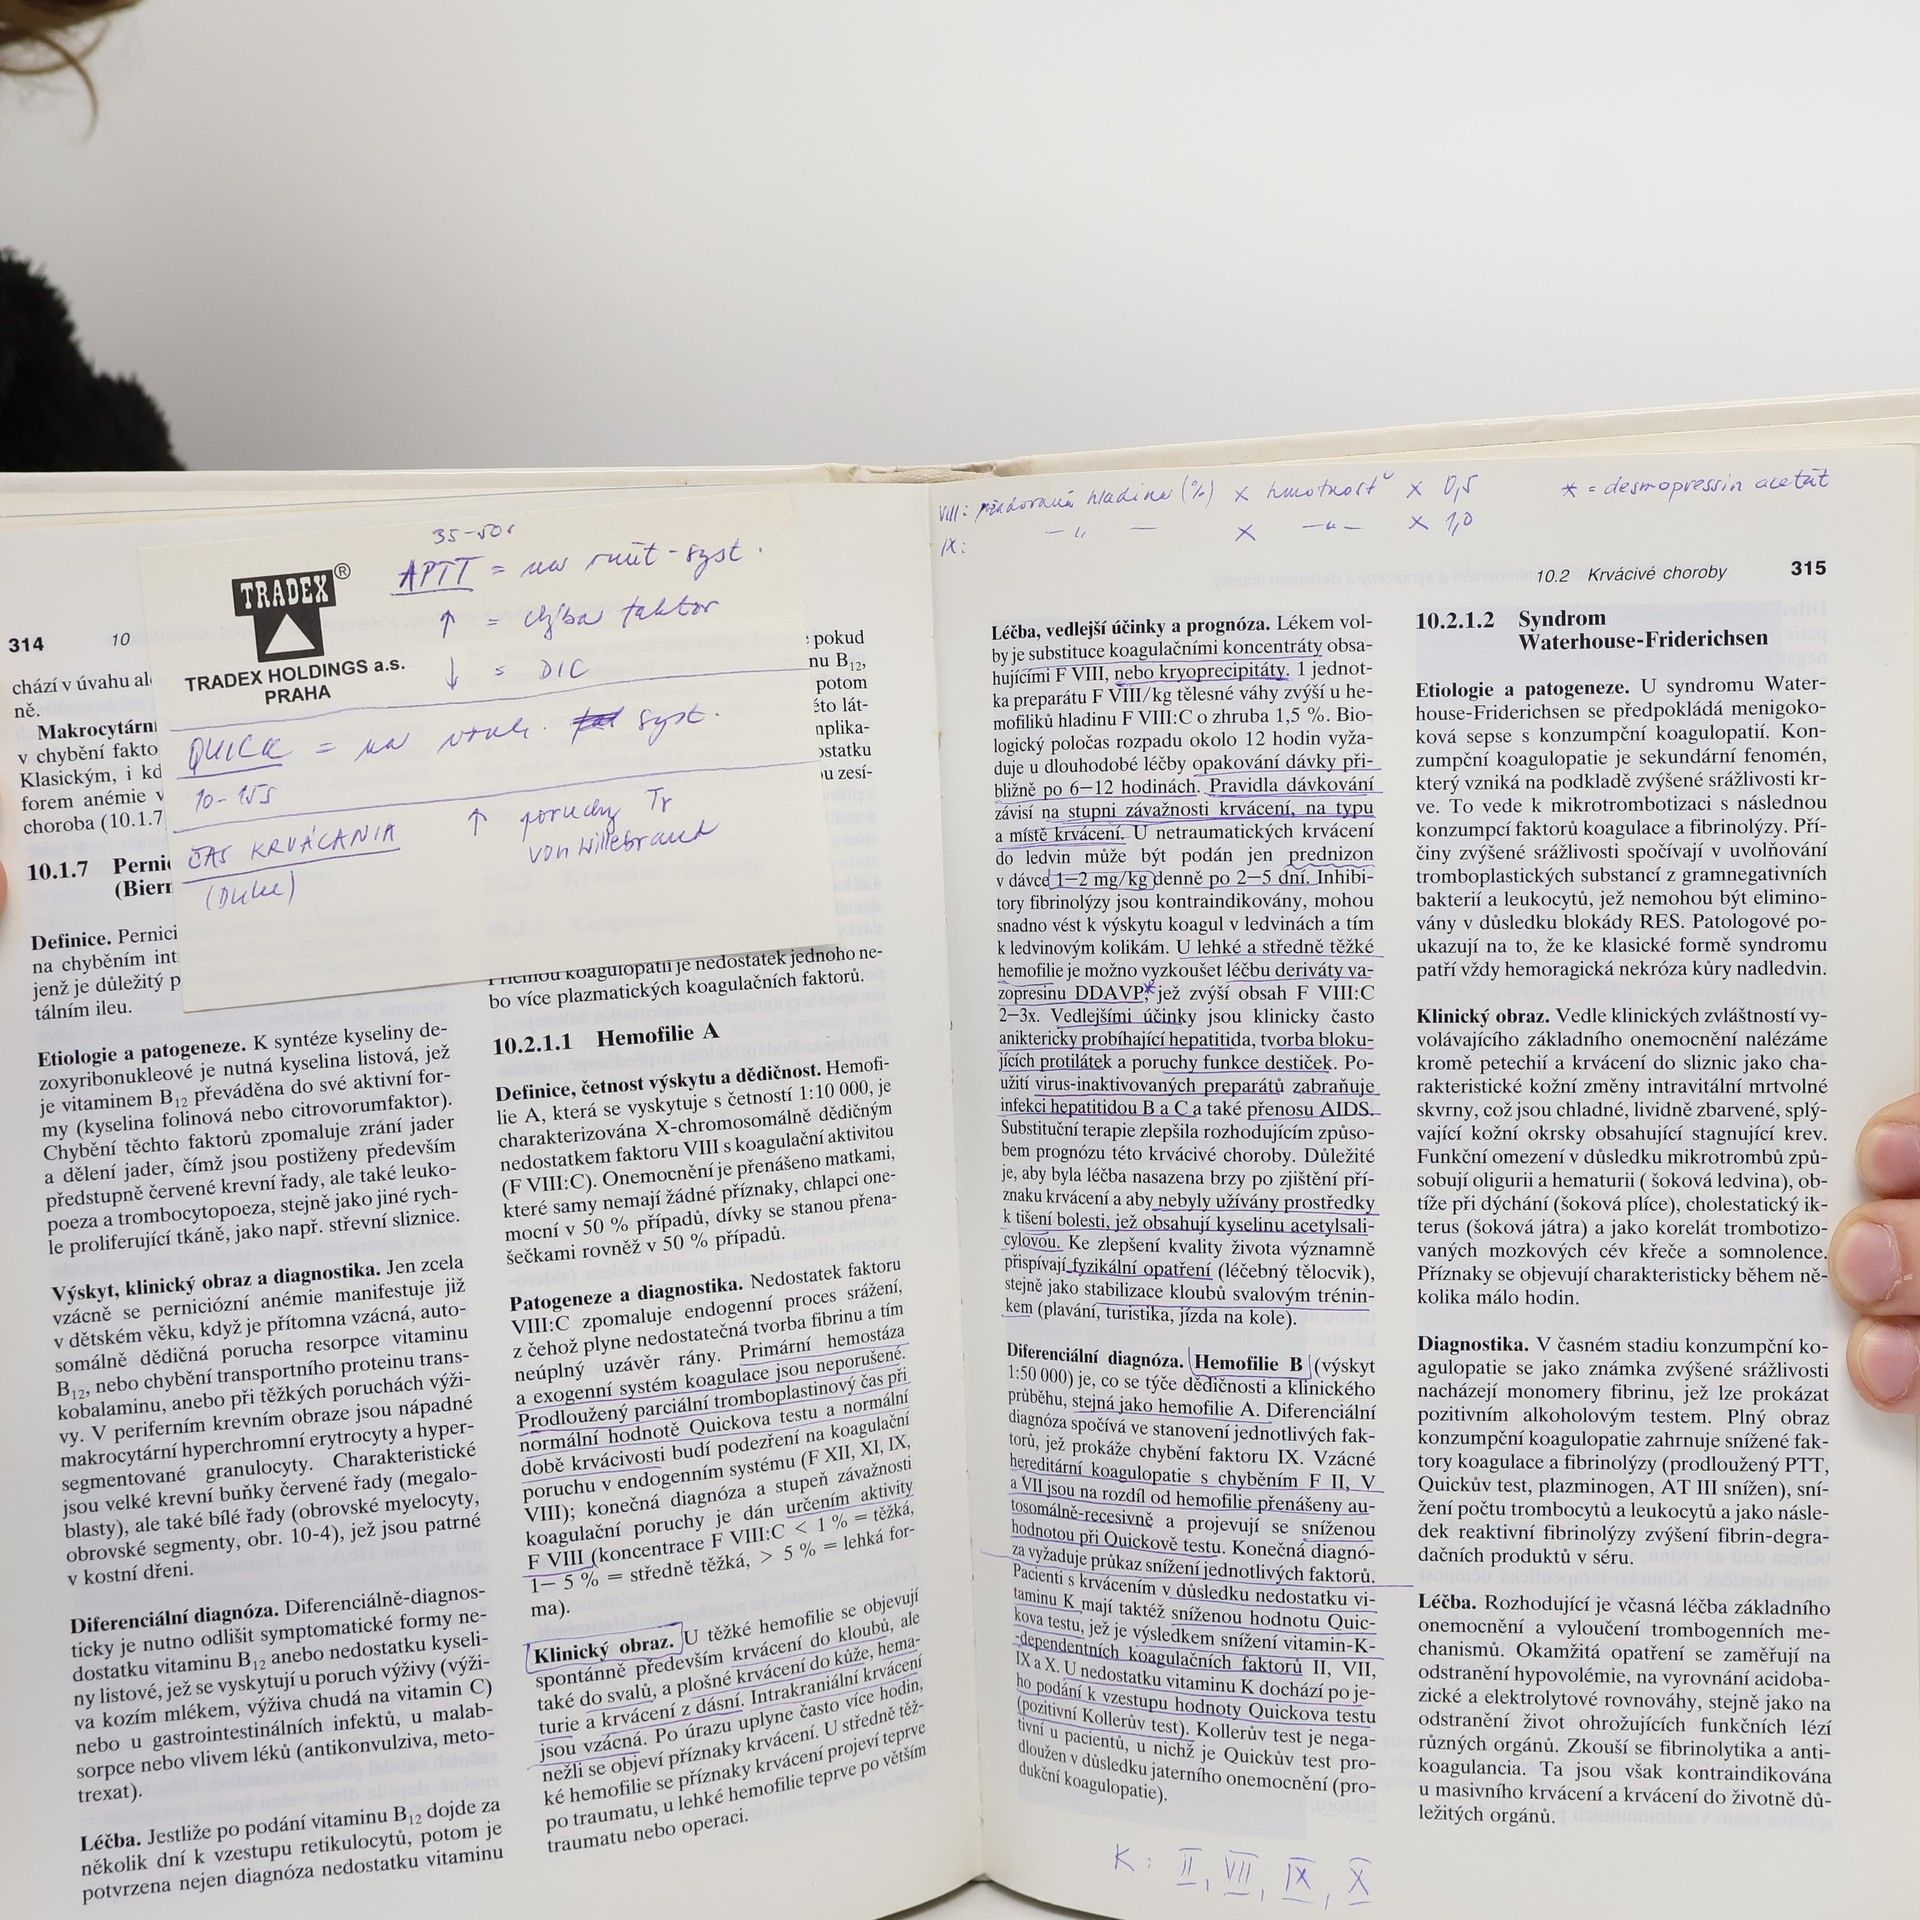 35-50s
APTT = na vnút-syst.
↑ = chýba faktor
↓ = DIC
TRADEX®
TRADEX HOLDINGS a.s.
PRAHA
QUICK = na vonk. syst.
10-15s
ČAS KRVÁCANIA
(Duke)
↑ poruchy Tr
von Willebrand
314 10
chází v úvahu
ně.
Makrocytární
v chybění
Klasickým, i
forem anémie v
choroba (10.1.7
10.1.7
(Bierm
Definice.
na chyběním
jenž je důležitý
tálním ileu.
Etiologie a patogeneze. K syntéze kyseliny de-
zoxyribonukleové je nutná kyselina listová, jež
je vitaminem B12 převáděna do své aktivní for-
my (kyselina folinová nebo citrovorumfaktor).
Chybění těchto faktorů zpomaluje zrání jader
a dělení jader, čímž jsou postiženy především
předstupně červené krevní řady, ale také leuko-
poeza a trombocytopoeza, stejně jako jiné rych-
le proliferující tkáně, jako např. střevní sliznice.
Výskyt, klinický obraz a diagnostika. Jen zcela
vzácně se perniciózní anémie manifestuje již
v dětském věku, když je přítomna vzácná, auto-
somálně dědičná porucha resorpce vitaminu
B12, nebo chybění transportního proteinu trans-
kobalaminu, anebo při těžkých poruchách výži-
vy. V periferním krevním obraze jsou nápadné
makrocytární hyperchromní erytrocyty a hyper-
segmentované granulocyty. Charakteristické
jsou velké krevní buňky červené řady (megalo-
blasty), ale také bílé řady (obrovské myelocyty,
obrovské segmenty, obr. 10-4), jež jsou patrné
v kostní dřeni.
Diferenciální diagnóza. Diferenciálně-diagnos-
ticky je nutno odlišit symptomatické formy ne-
dostatku vitaminu B12 anebo nedostatku kyseli-
ny listové, jež se vyskytují u poruch výživy (výži-
va kozím mlékem, výživa chudá na vitamin C)
nebo u gastrointestinálních infektů, u malab-
sorpce nebo vlivem léků (antikonvulziva, meto-
trexat).
Léčba. Jestliže po podání vitaminu B12 dojde za
několik dní k vzestupu retikulocytů, potom je
potvrzena nejen diagnóza nedostatku vitaminu
pokud
nu B12,
potom
éto lát-
mplika-
ostatku
zesí-
Příčinou koagulopatií je nedostatek jednoho ne-
bo více plazmatických koagulačních faktorů.
10.2.1.1 Hemofilie A
Definice, četnost výskytu a dědičnost. Hemofi-
lie A, která se vyskytuje s četností 1:10 000, je
charakterizována X-chromosomálně dědičným
nedostatkem faktoru VIII s koagulační aktivitou
(F VIII:C). Onemocnění je přenášeno matkami,
které samy nemají žádné příznaky, chlapci one-
mocní v 50 % případů, dívky se stanou přena-
šečkami rovněž v 50 % případů.
Patogeneze a diagnostika. Nedostatek faktoru
VIII:C zpomaluje endogenní proces srážení,
z čehož plyne nedostatečná tvorba fibrinu a tím
neúplný uzávěr rány. Primární hemostáza
a exogenní systém koagulace jsou neporušené.
Prodloužený parciální tromboplastinový čas při
normální hodnotě Quickova testu a normální
době krvácivosti budí podezření na koagulační
poruchu v endogenním systému (F XII, XI, IX,
VIII); konečná diagnóza a stupeň závažnosti
koagulační poruchy je dán určením aktivity
F VIII (koncentrace F VIII:C < 1 % = těžká,
1– 5 % = středně těžká, > 5 % = lehká for-
ma).
Klinický obraz. U těžké hemofilie se objevují
spontánně především krvácení do kloubů, ale
také do svalů, a plošné krvácení do kůže, hema-
turie a krvácení z dásní. Intrakraniální krvácení
jsou vzácná. Po úrazu uplyne často více hodin,
nežli se objeví příznaky krvácení. U středně těž-
ké hemofilie se příznaky krvácení projeví teprve
po traumatu, u lehké hemofilie teprve po větším
traumatu nebo operaci.
VIII: hladina (%) x hmotnosť x 0,5
IX: — " — x — " — x 1,0
* = desmopressin acetát
10.2 Krvácivé choroby 315
Léčba, vedlejší účinky a prognóza. Lékem vol-
by je substituce koagulačními koncentráty obsa-
hujícími F VIII, nebo kryoprecipitáty. 1 jednot-
ka preparátu F VIII/kg tělesné váhy zvýší u he-
mofiliků hladinu F VIII:C o zhruba 1,5 %. Bio-
logický poločas rozpadu okolo 12 hodin vyža-
duje u dlouhodobé léčby opakování dávky při-
bližně po 6–12 hodinách. Pravidla dávkování
závisí na stupni závažnosti krvácení, na typu
a místě krvácení. U netraumatických krvácení
do ledvin může být podán jen prednizon
v dávce 1–2 mg/kg denně po 2–5 dní. Inhibi-
tory fibrinolýzy jsou kontraindikovány, mohou
snadno vést k výskytu koagul v ledvinách a tím
k ledvinovým kolikám. U lehké a středně těžké
hemofilie je možno vyzkoušet léčbu deriváty va-
zopresinu DDAVP,* jež zvýší obsah F VIII:C
2–3x. Vedlejšími účinky jsou klinicky často
anikterický probíhající hepatitida, tvorba bloku-
jících protilátek a poruchy funkce destiček. Po-
užití virus-inaktivovaných preparátů zabraňuje
infekci hepatitidou B a C a také přenosu AIDS.
Substituční terapie zlepšila rozhodujícím způso-
bem prognózu této krvácivé choroby. Důležité
je, aby byla léčba nasazena brzy po zjištění pří-
znaku krvácení a aby nebyly užívány prostředky
k tišení bolesti, jež obsahují kyselinu acetylsali-
cylovou. Ke zlepšení kvality života významně
přispívají fyzikální opatření (léčebný tělocvik),
stejně jako stabilizace kloubů svalovým trénin-
kem (plavání, turistika, jízda na kole).
Diferenciální diagnóza. Hemofilie B (výskyt
1:50 000) je, co se týče dědičnosti a klinického
průběhu, stejná jako hemofilie A. Diferenciální
diagnóza spočívá ve stanovení jednotlivých fak-
torů, jež prokáže chybění faktoru IX. Vzácné
hereditární koagulopatie s chyběním F II, V
a VII jsou na rozdíl od hemofilie přenášeny au-
tosomálně-recesivně a projevují se sníženou
hodnotou při Quickově testu. Konečná diagnó-
za vyžaduje průkaz snížení jednotlivých faktorů.
Pacienti s krvácením v důsledku nedostatku vi-
taminu K mají taktéž sníženou hodnotu Quic-
kova testu, jež je výsledkem snížení vitamin-K-
-dependentních koagulačních faktorů II, VII,
IX a X. U nedostatku vitaminu K dochází po je-
ho podání k vzestupu hodnoty Quickova testu
(pozitivní Kollerův test). Kollerův test je nega-
tivní u pacientů, u nichž je Quickův test pro-
dloužen v důsledku jaterního onemocnění (pro-
dukční koagulopatie).
K: II, VII, IX, X
10.2.1.2 Syndrom
Waterhouse-Friderichsen
Etiologie a patogeneze. U syndromu Water-
house-Friderichsen se předpokládá menigoko-
ková sepse s konzumpční koagulopatií. Kon-
zumpční koagulopatie je sekundární fenomén,
který vzniká na podkladě zvýšené srážlivosti kr-
ve. To vede k mikrotrombotizaci s následnou
konzumpcí faktorů koagulace a fibrinolýzy. Pří-
činy zvýšené srážlivosti spočívají v uvolňování
tromboplastických substancí z gramnegativních
bakterií a leukocytů, jež nemohou být elimino-
vány v důsledku blokády RES. Patologové po-
ukazují na to, že ke klasické formě syndromu
patří vždy hemoragická nekróza kůry nadledvin.
Klinický obraz. Vedle klinických zvláštností vy-
volávajícího základního onemocnění nalézáme
kromě petechií a krvácení do sliznic jako cha-
rakteristické kožní změny intravitální mrtvolné
skvrny, což jsou chladné, lividně zbarvené, splý-
vající kožní okrsky obsahující stagnující krev.
Funkční omezení v důsledku mikrotrombů způ-
sobují oligurii a hematurii ( šoková ledvina), ob-
tíže při dýchání (šoková plíce), cholestatický ik-
terus (šoková játra) a jako korelát trombotizo-
vaných mozkových cév křeče a somnolence.
Příznaky se objevují charakteristicky během ně-
kolika málo hodin.
Diagnostika. V časném stadiu konzumpční ko-
agulopatie se jako známka zvýšené srážlivosti
nacházejí monomery fibrinu, jež lze prokázat
pozitivním alkoholovým testem. Plný obraz
konzumpční koagulopatie zahrnuje snížené fak-
tory koagulace a fibrinolýzy (prodloužený PTT,
Quickův test, plazminogen, AT III snížen), sní-
žení počtu trombocytů a leukocytů a jako násle-
dek reaktivní fibrinolýzy zvýšení fibrin-degra-
dačních produktů v séru.
Léčba. Rozhodující je včasná léčba základního
onemocnění a vyloučení trombogenních me-
chanismů. Okamžitá opatření se zaměřují na
odstranění hypovolémie, na vyrovnání acidoba-
zické a elektrolytové rovnováhy, stejně jako na
odstranění život ohrožujících funkčních lézí
různých orgánů. Zkouší se fibrinolytika a anti-
koagulancia. Ta jsou však kontraindikována
u masivního krvácení a krvácení do životně dů-
ležitých orgánů.